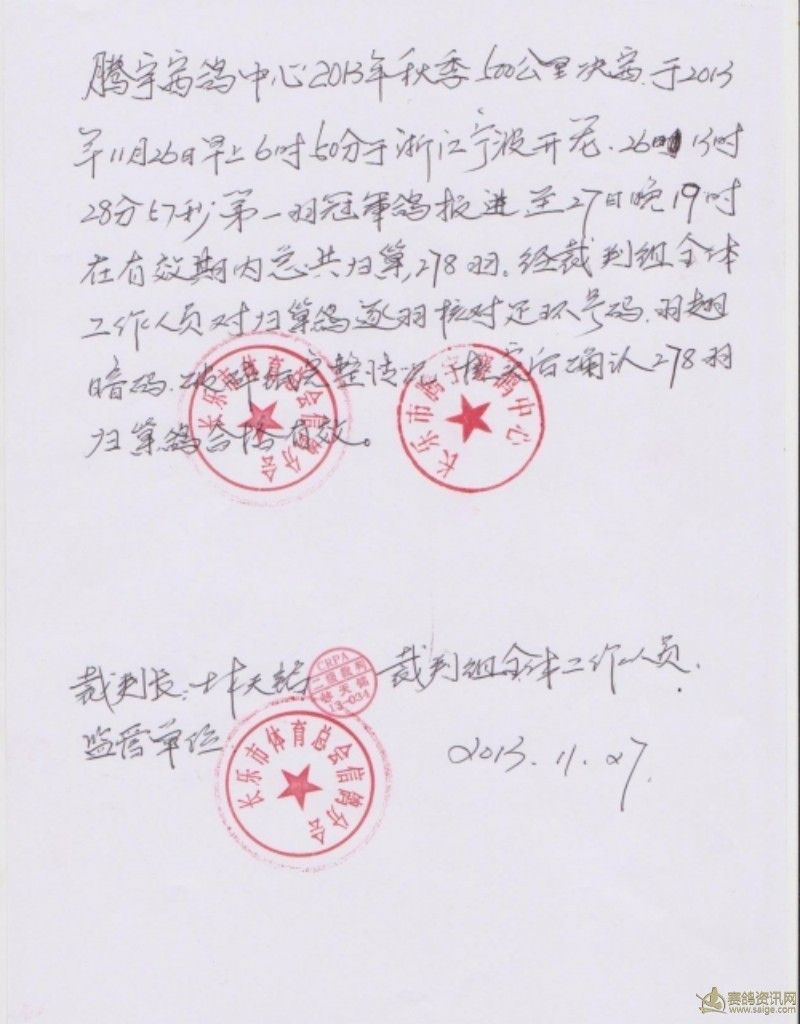 腾宇赛鸽中心2013年秋季500公里决赛.于2013
年11月26日早上6时50分于浙江宁波开笼.26日13时
28分57秒第一羽冠军鸽报进至27日晚19时
在有效期内总共归巢,278羽。经裁判组全体
工作人员对归巢鸽逐羽核对足环号码.羽翅
暗码.完整情况.核实后确认278羽
归巢鸽合格有效。
长乐市体育总会信鸽分会
长乐市腾宇赛鸽中心
裁判长:林天
CRPA
二级裁判
13-034
裁判组全体工作人员.
监督单位
长乐市体育总会信鸽分会
2013.11.27.
赛鸽资讯网
www.saige.com